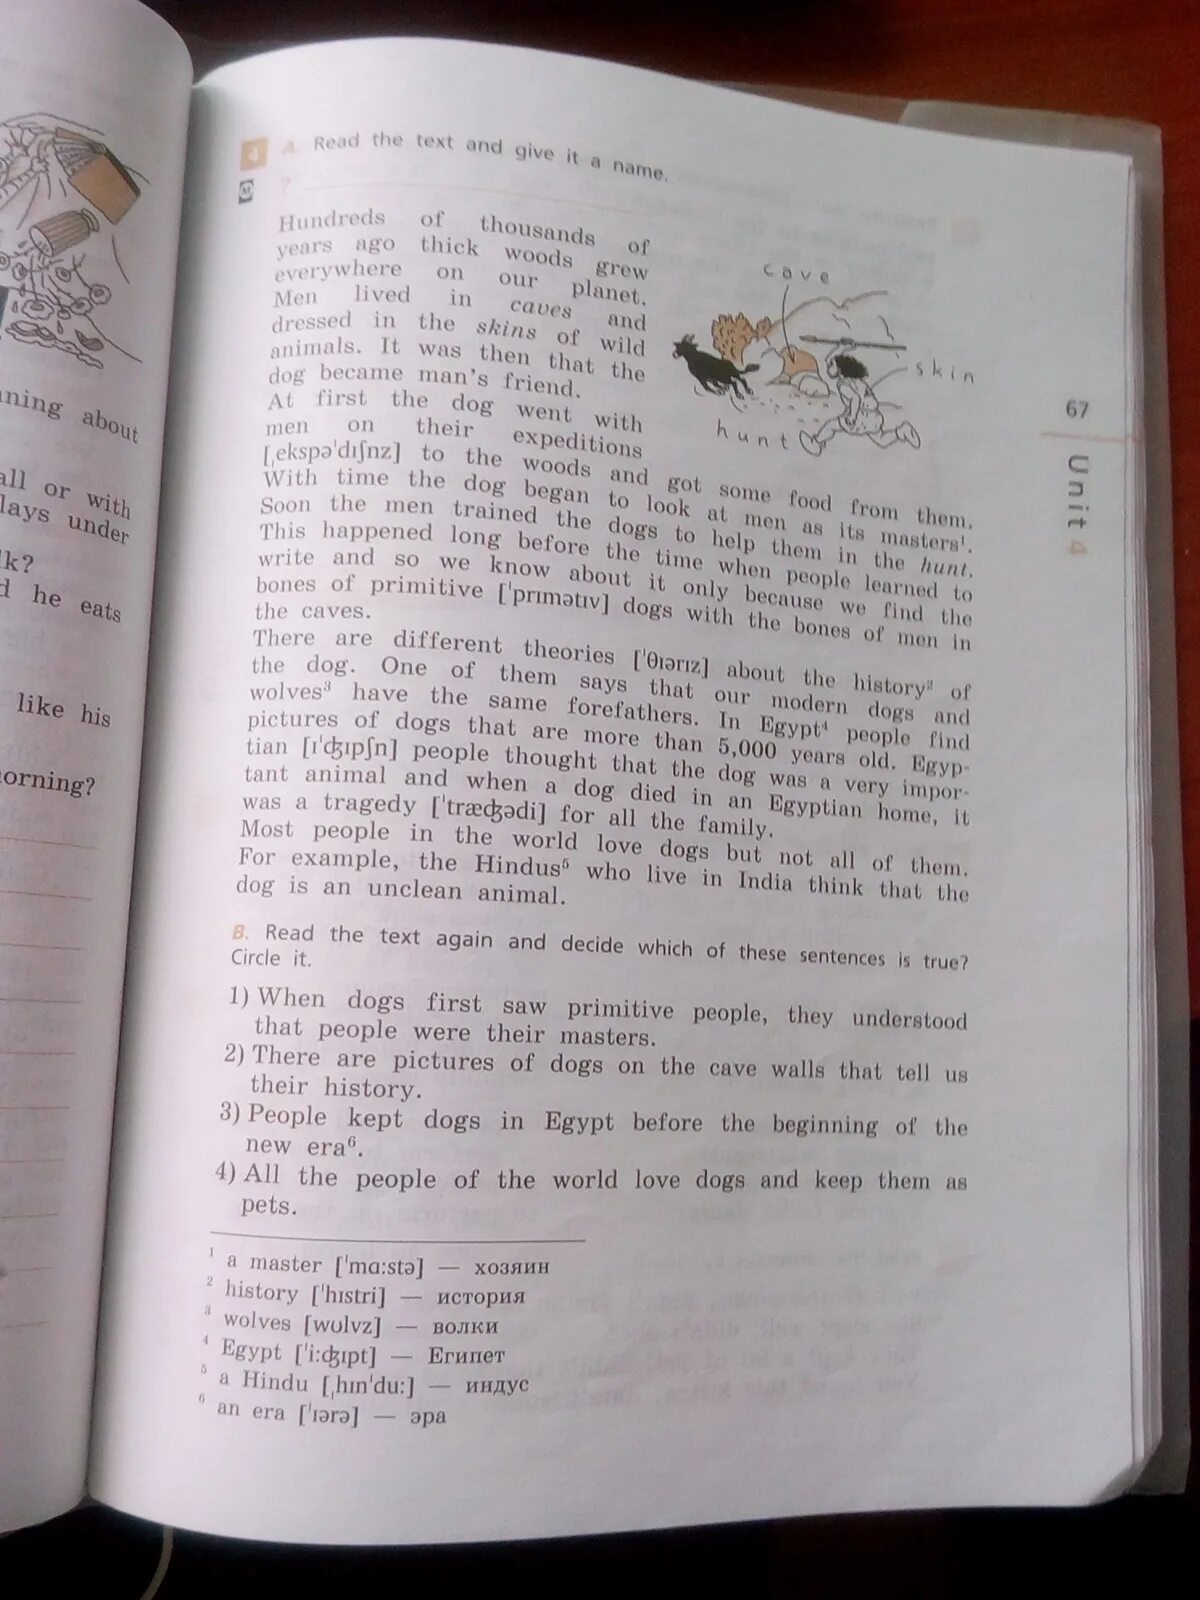 ning about
all or with
lays under
k?
d he eats
like his
orning?
4 A. Read the text and give it a name.
Hundreds of thousands of
years ago thick woods grew
everywhere on our planet.
Men lived in caves and
dressed in the skins of wild
animals. It was then that the
dog became man's friend.
At first the dog went with
men on their expeditions
[ˌekspəˈdɪʃnz] to the woods and got some food from them.
With time the dog began to look at men as its masters¹.
Soon the men trained the dogs to help them in the hunt.
This happened long before the time when people learned to
write and so we know about it only because we find the
bones of primitive [ˈprɪmətɪv] dogs with the bones of men in
the caves.
There are different theories [ˈθɪərɪz] about the history² of
the dog. One of them says that our modern dogs and
wolves³ have the same forefathers. In Egypt⁴ people find
pictures of dogs that are more than 5,000 years old. Egyp-
tian [ɪˈʤɪpʃn] people thought that the dog was a very impor-
tant animal and when a dog died in an Egyptian home, it
was a tragedy [ˈtræʤədi] for all the family.
Most people in the world love dogs but not all of them.
For example, the Hindus⁵ who live in India think that the
dog is an unclean animal.
cave
skin
hunt
67
Unit 4
B. Read the text again and decide which of these sentences is true?
Circle it.
1) When dogs first saw primitive people, they understood
that people were their masters.
2) There are pictures of dogs on the cave walls that tell us
their history.
3) People kept dogs in Egypt before the beginning of the
new era⁶.
4) All the people of the world love dogs and keep them as
pets.
¹ a master [ˈmɑːstə] — хозяин
² history [ˈhɪstri] — история
³ wolves [wʊlvz] — волки
⁴ Egypt [ˈiːʤɪpt] — Египет
⁵ a Hindu [ˌhɪnˈduː] — индус
⁶ an era [ˈɪərə] — эра